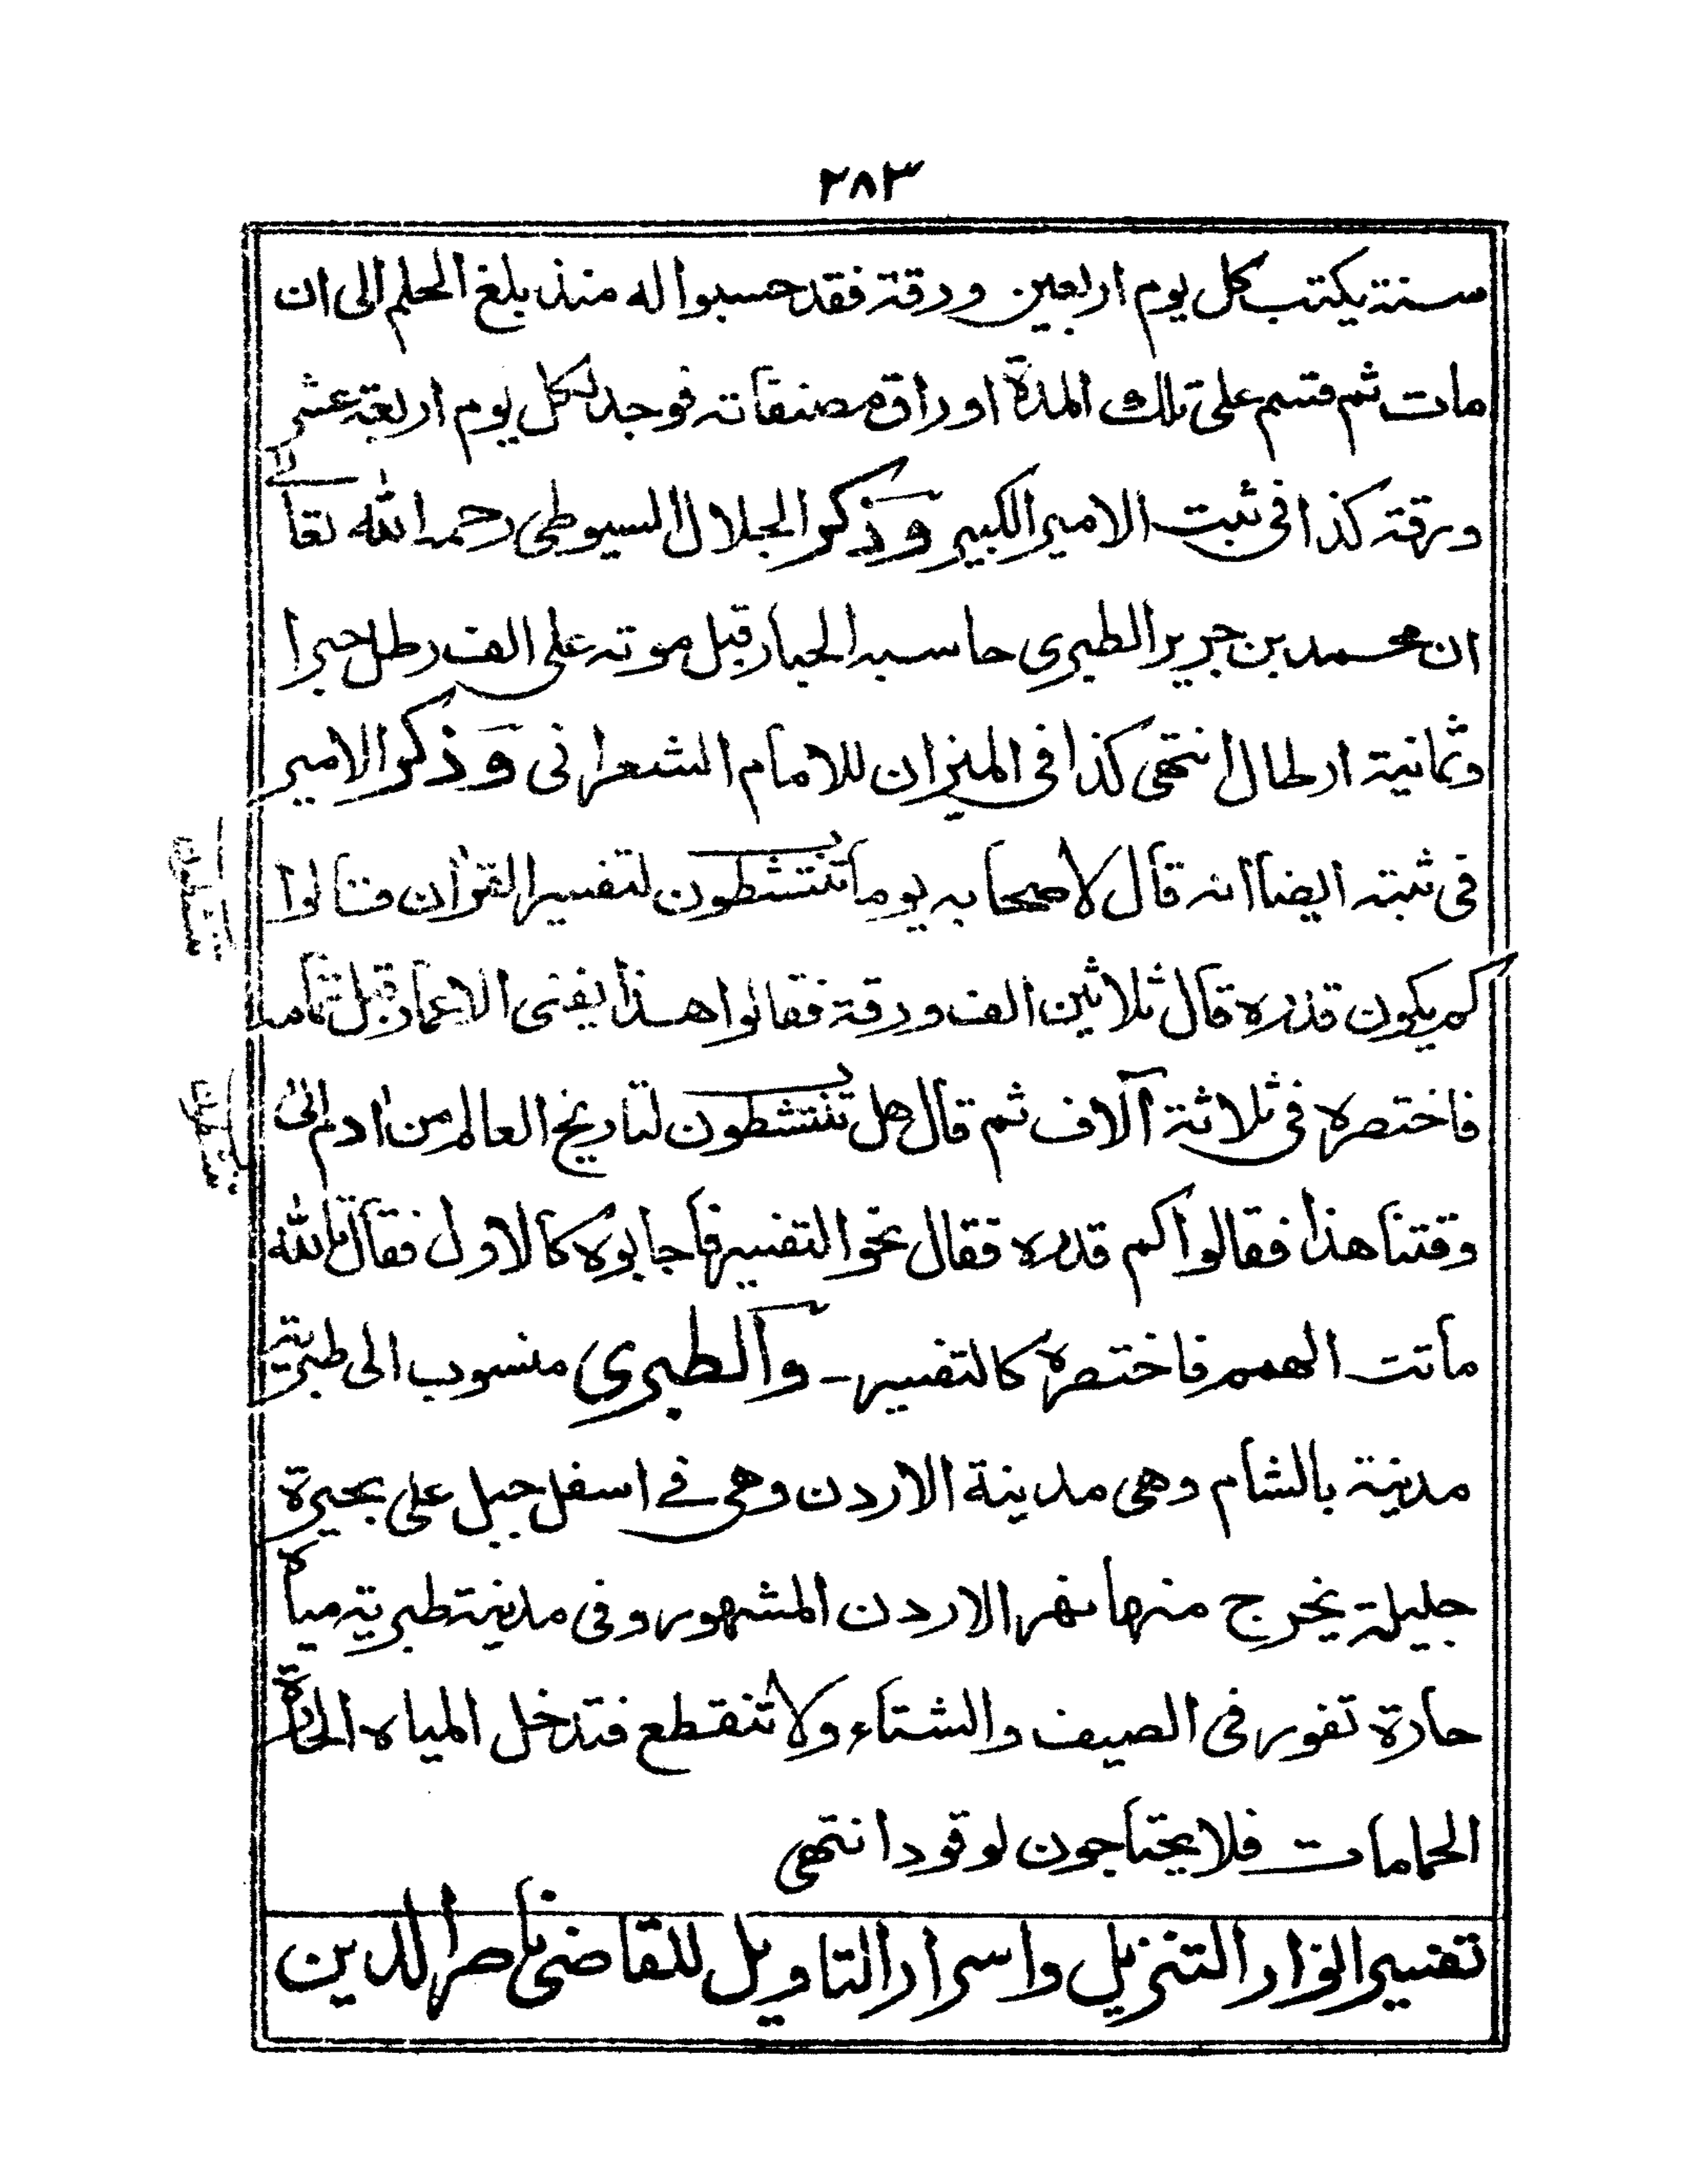 ٢٨٣
سنة يكتب كل يوم اربعين ورقة فقد حسبوا له منذ بلغ الحلم الى ان
مات ثم قسم على تلك المدة اوراق مصنفاته فوجد لكل يوم اربعة عشر
ورقة كذا فى ثبت الامير الكبير وَذكر الجلال السيوطى رحمه الله تعالى
ان محمد بن جرير الطبرى حاسبه الحبار قبل موته على الف رطل حبرا
وثمانية ارطال انتهى كذا فى الميزان للامام الشعرانى وَذكر الامير
فى ثبته ايضا انه قال لاصحابه يوما تنتشطون لتفسير القرآن فقالوا
كم يكون قدره قال ثلاثين الف ورقة فقالوا هذا يفنى الاعمار قبل تمامه
فاختصره فى ثلاثة آلاف ثم قال هل تنتشطون لتاريخ العالم من ادم الى
وقتنا هذا فقالوا كم قدره فقال نحو التفسير فاجابوه كالاول فقال تالله
ماتت الهمم فاختصره كالتفسير ـ والطبرى منسوب الى طبرية
مدينة بالشام وهى مدينة الاردن وهى فے اسفل جبل على بحيرة
جليلة يخرج منها نهر الاردن المشهور وفى مدينة طبرية مياه
حارة تفور فى الصيف والشتاء ولا تنقطع فتدخل المياه الحارة
الحمامات فلا يحتاجون لوقود انتهى
تفسير انوار التنزيل واسرار التاويل للقاضى ناصر الدين